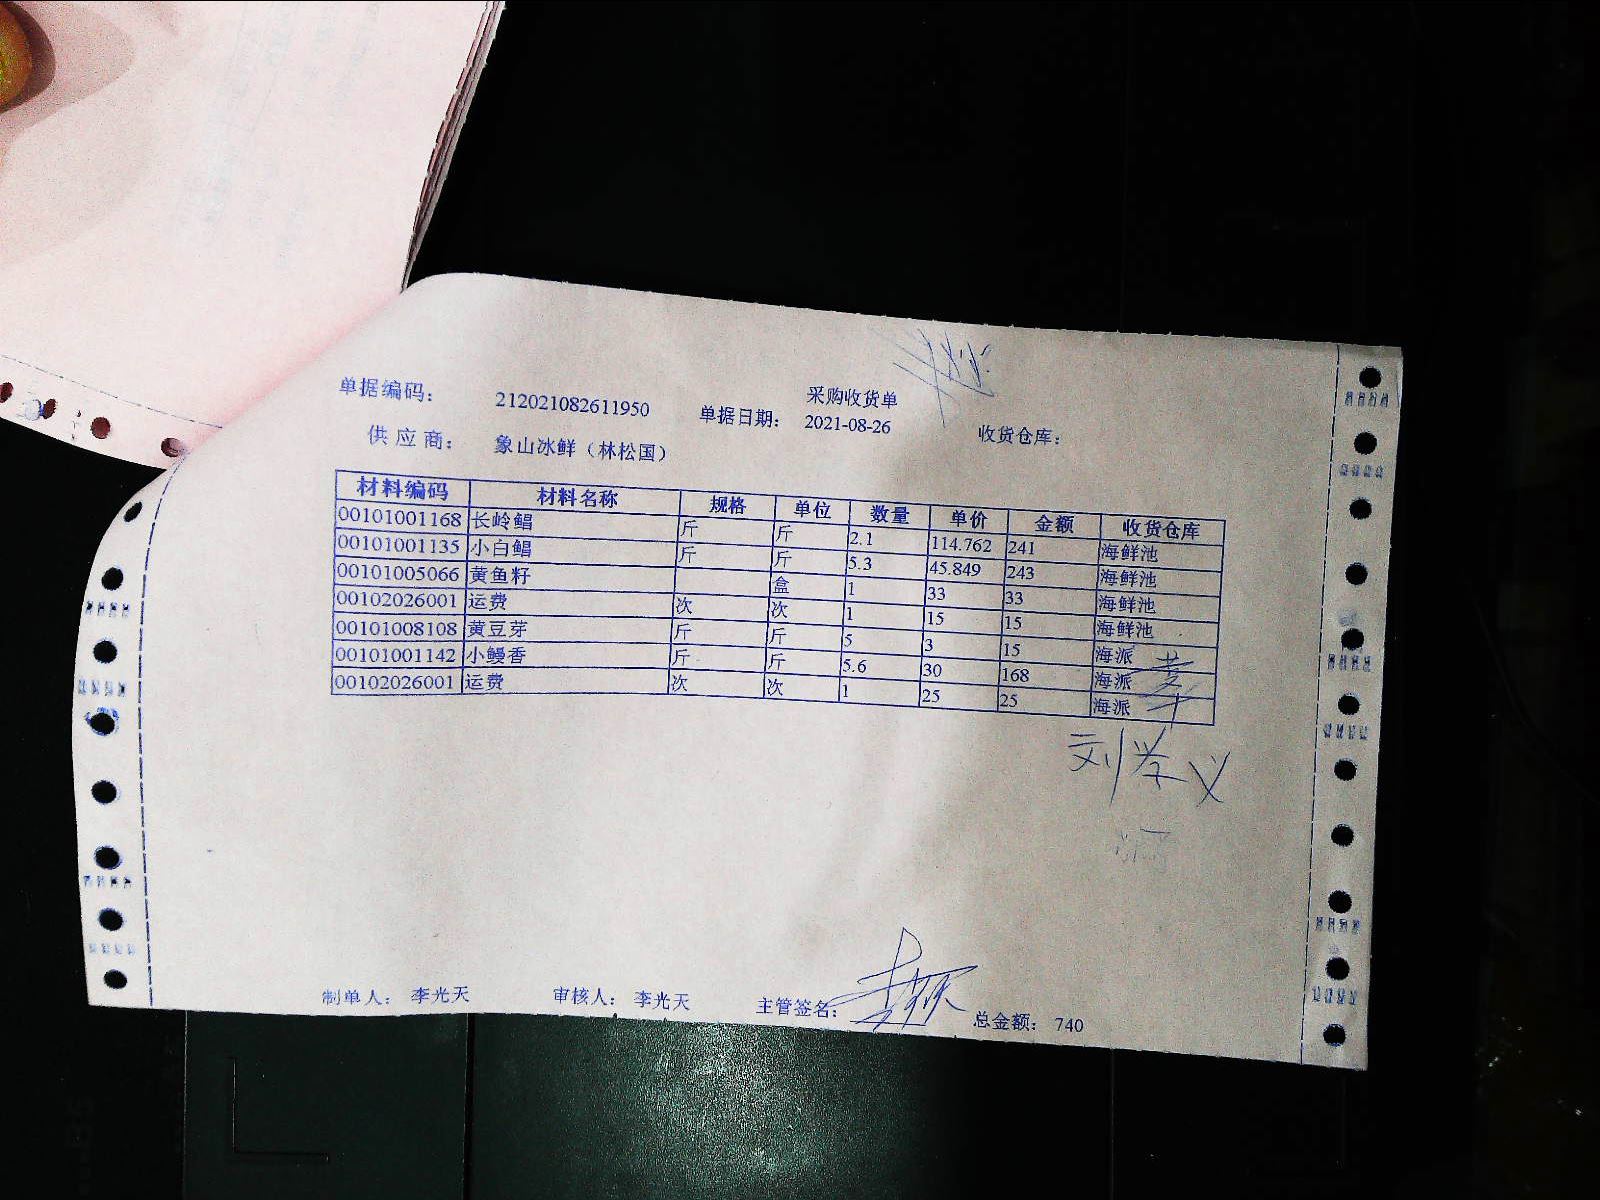 采购收货单
单据编码： 212021082611950 单据日期： 2021-08-26 收货仓库：
供应商： 象山冰鲜（林松国）
材料编码 材料名称 规格 单位 数量 单价 金额 收货仓库
00101001168 长岭鲳 斤 斤 2.1 114.762 241 海鲜池
00101001135 小白鲳 斤 斤 5.3 45.849 243 海鲜池
00101005066 黄鱼籽 盒 1 33 33 海鲜池
00102026001 运费 次 次 1 15 15 海鲜池
00101008108 黄豆芽 斤 斤 5 3 15 海派
00101001142 小鳗香 斤 斤 5.6 30 168 海派
00102026001 运费 次 次 1 25 25 海派
刘学义
制单人： 李光天 审核人： 李光天 主管签名： 总金额： 740